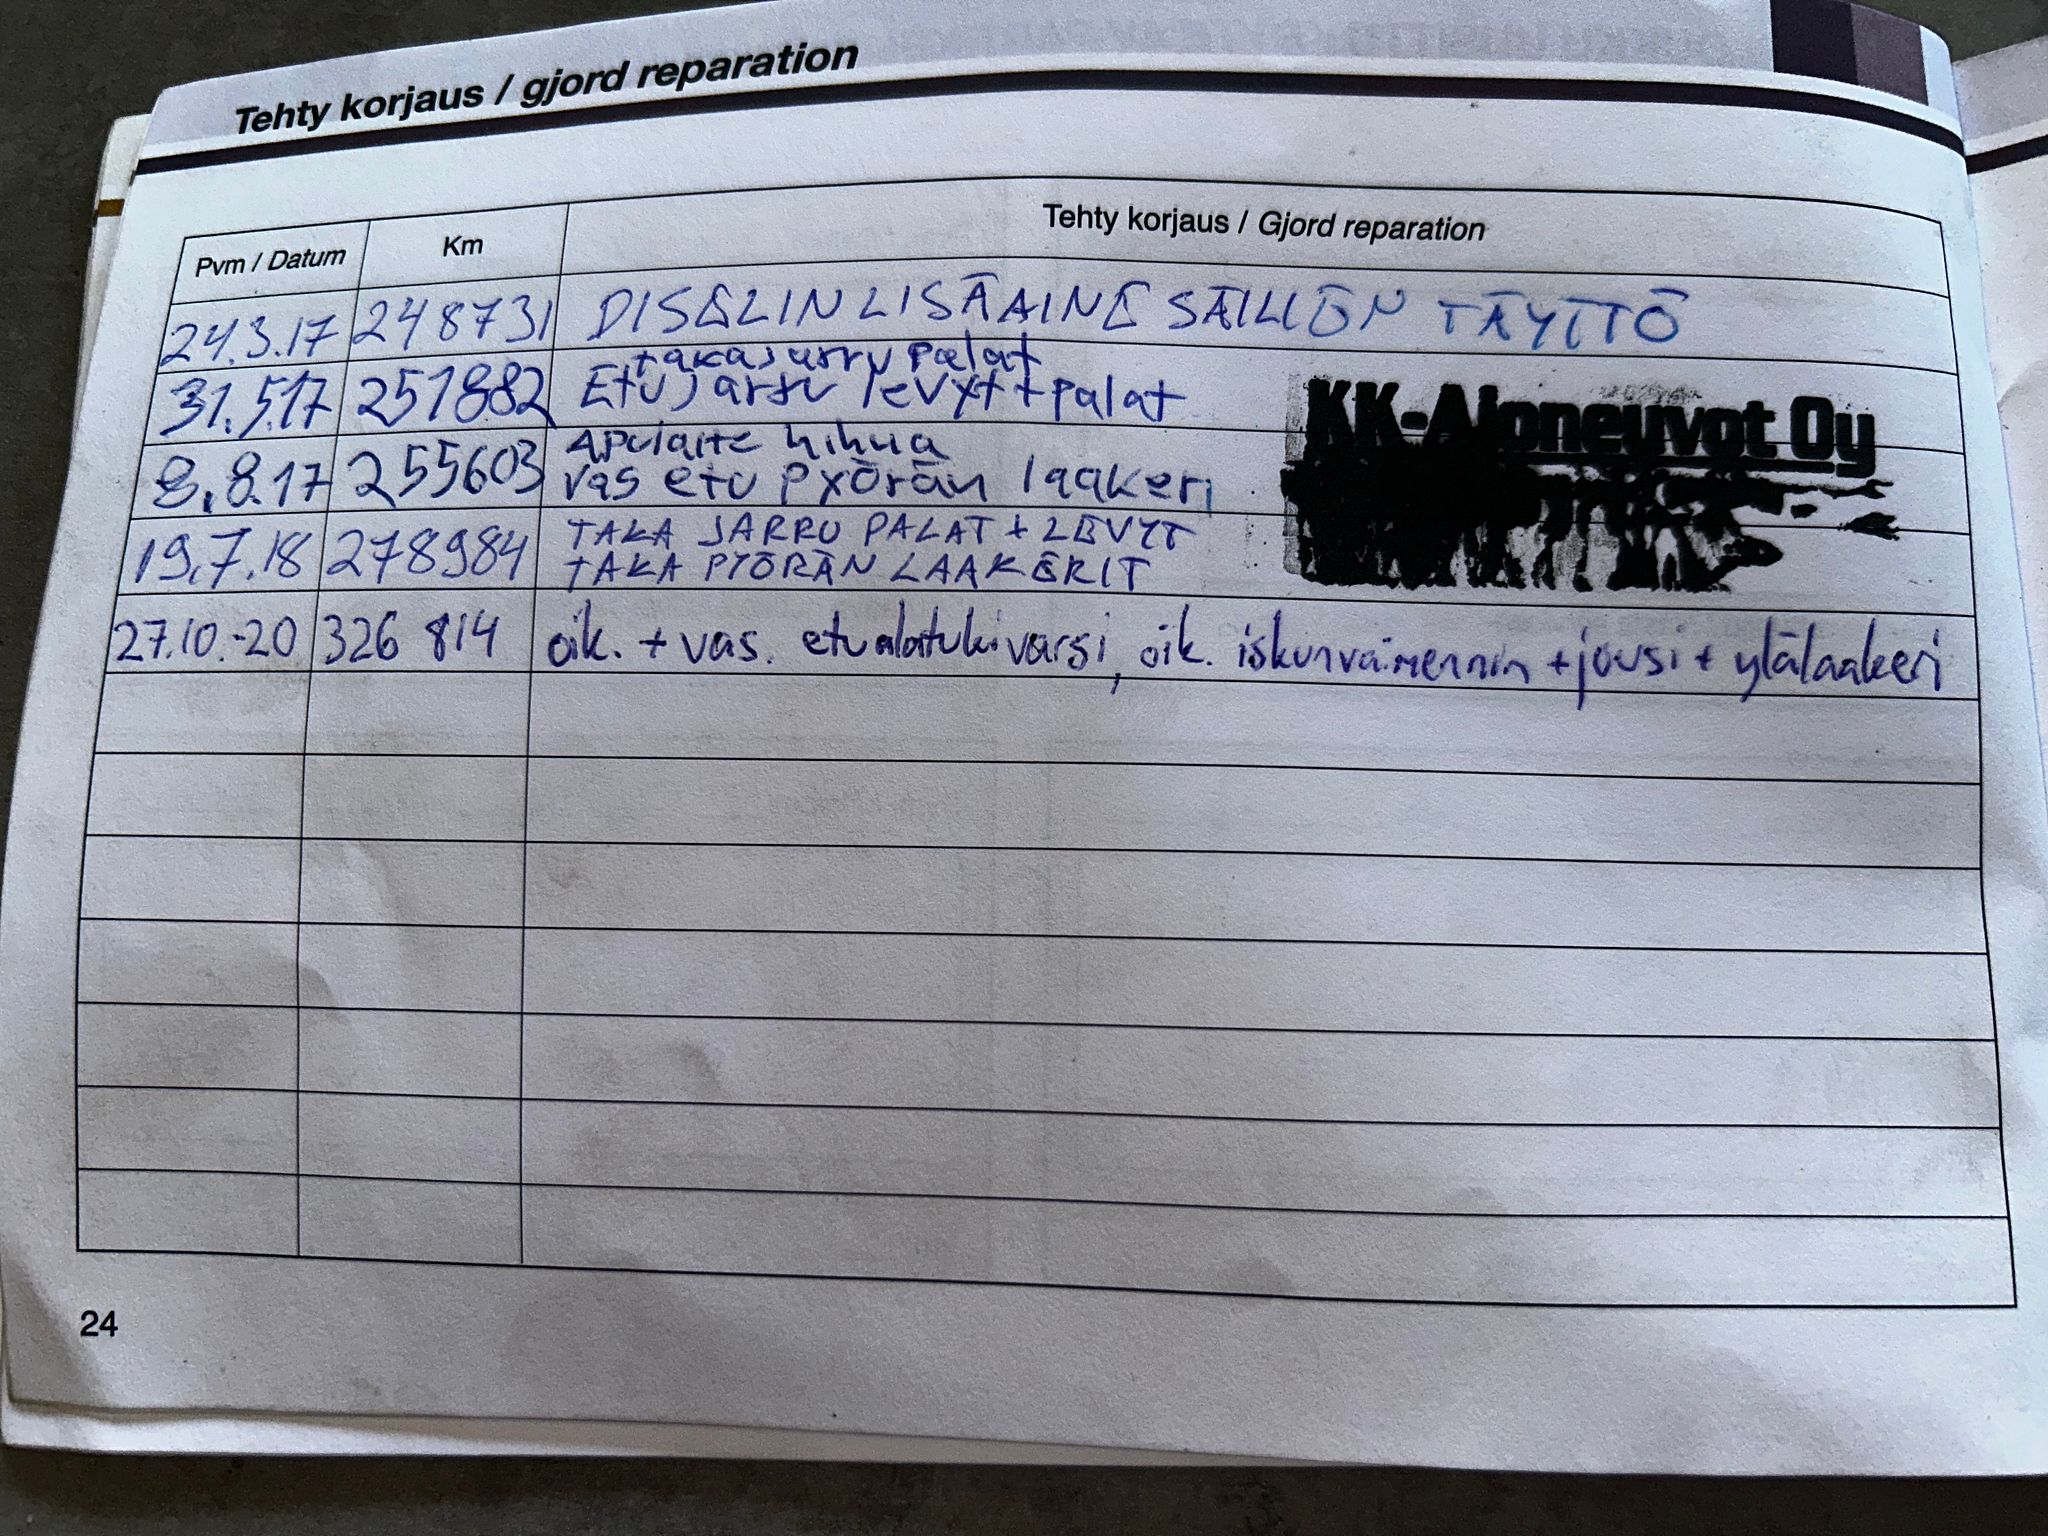 Tehty korjaus / gjord reparation
Pvm / Datum Km Tehty korjaus / Gjord reparation
24.3.17 248731 DISELIN LISÄAINE SÄILIÖN TÄYTTÖ
takajarru palat
31.5.17 251882 Etu jarru levyt + palat
Apulaite hihna
8.8.17 255603 vas etu pyörän laakeri
KK-Ajoneuvot Oy
19.7.18 278984 TAKA JARRU PALAT + LEVYT
TAKA PYÖRÄN LAAKERIT
27.10.-20 326 814 oik. + vas. etualatukivarsi, oik. iskunvaimennin + jousi + ylälaakeri
24